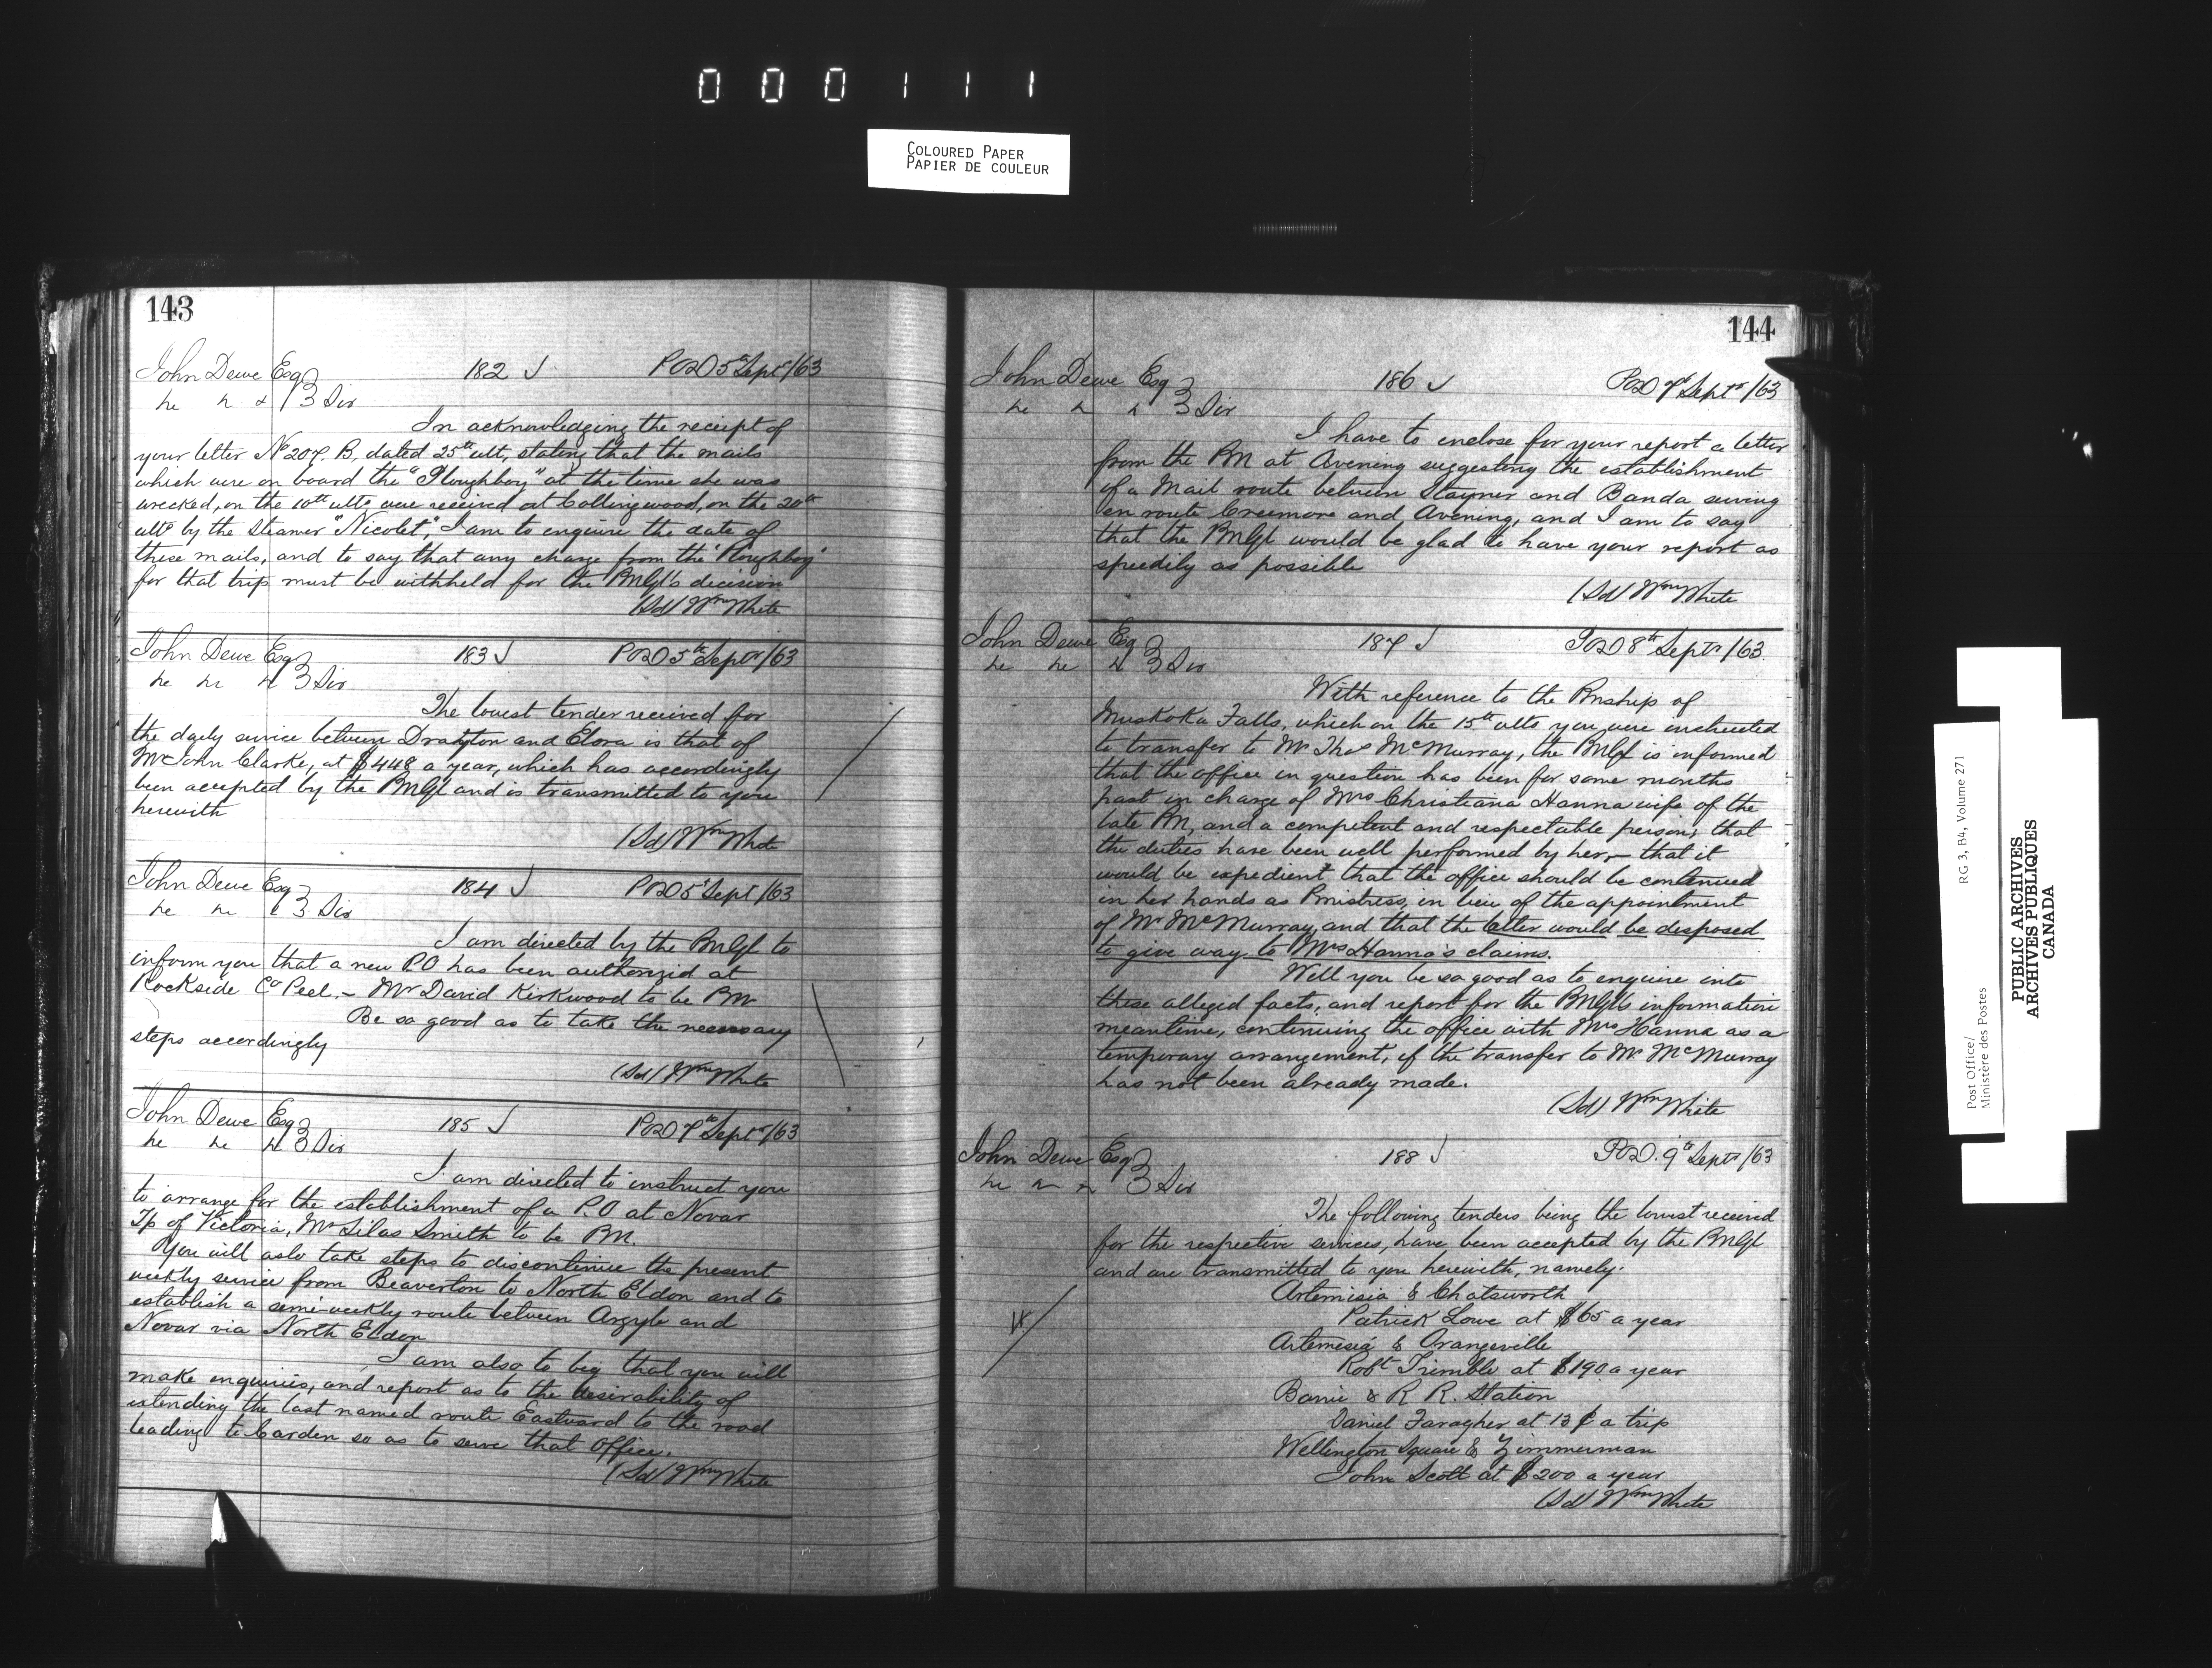 000111
COLOURED PAPER
PAPIER DE COULEUR
143
John Dewe Esq 182 POD 5th Sept/63
3 Div
In acknowledging the receipt of
your letter No 207. B, dated 25th ult, stating that the mails
which were on board the "Ploughboy" at the time she was
wrecked, on the 10th ulto, were received at Collingwood, on the 20th
ulto by the Steamer "Nicolet", I am to enquire the date of
these mails, and to say that any charge from the "Ploughboy"
for that trip must be withheld for the PMGl's decision
(Sd) Wm White
John Dewe Esq 183 POD 5th Septr/63
3 Div
The lowest tender received for
the daily service between Drayton and Elora is that of
Mr John Clarke, at $448 a year, which has accordingly
been accepted by the PMGl and is transmitted to you
herewith
(Sd) Wm White
John Dewe Esq 184 POD 5 Sept/63
3 Div
I am directed by the PMGl to
inform you that a new PO has been authorized at
Rockside Co Peel, – Mr David Kirkwood to be PM
Be so good as to take the necessary
steps accordingly
(Sd) Wm White
John Dewe Esq 185 POD 7th Septr/63
3 Div
I am directed to instruct you
to arrange for the establishment of a P.O at Novar
Tp of Victoria, Mr Silas Smith to be PM.
You will aslo take steps to discontinue the present
weekly service from Beaverton to North Eldon and to
establish a semi-weekly route between Argyle and
Novar via North Eldon
I am also to beg that you will
make enquiries, and report as to the desirability of
extending the last named route Eastward to the road
leading to Carden so as to serve that Office.
(Sd) Wm White
144
John Dewe Esq 186 POD 7th Septr/63
3 Div
I have to enclose for your report a letter
from the PM at Avening suggesting the establishment
of a Mail route between Stayner and Banda serving
en route Creemore and Avening, and I am to say
that the PMGl would be glad to have your report as
speedily as possible
(Sd) Wm White
John Dewe Esq 187 POD 8th Septr/63
3 Div
With reference to the Pmship of
Muskoka Falls, which on the 15th ulto you were instructed
to transfer to Mr Thos McMurray, the PMGl is informed
that the office in question has been for some months
past in charge of Mrs Christiana Hanna wife of the
late PM, and a competent and respectable person; that
the duties have been well performed by her, – that it
would be expedient that the office should be continued
in her hands as Pmistress, in lieu of the appointment
of Mr McMurray, and that the latter would be disposed
to give way to Mrs Hanna's claims.
Will you be so good as to enquire into
these alleged facts, and report for the PMGl's information
meantime, continuing the office with Mrs Hanna as a
temporary arrangement, if the transfer to Mr McMurray
has not been already made.
(Sd) Wm White
John Dewe Esq 188 POD. 9th Septr/63
3 Div
The following tenders being the lowest received
for the respective services, have been accepted by the PMGl
and are transmitted to you herewith, namely.
Artemisia & Chatsworth
Patrick Lowe at $65 a year
Artemesia & Orangeville
Robt Trimble at $190 a year
Barrie & R R. Station
Daniel Faragher at 13 ¢ a trip
Wellington Square & Zimmerman
John Scott at $200 a year
(Sd) Wm White
Post Office/
Ministère des Postes
RG 3, B4, Volume 271
PUBLIC ARCHIVES
ARCHIVES PUBLIQUES
CANADA